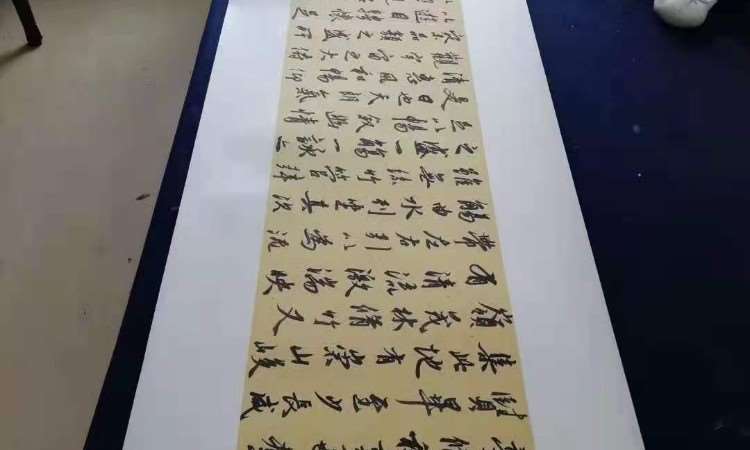 賢畢至少長咸
集此地有崇山峻
領茂林脩竹又
有清流激湍映
帶左右引以為流
觴曲水列坐其次
雖無絲竹管弦
之盛一觴一詠亦
足以暢敘幽情
是日也天朗氣
清惠風和暢仰
觀宇宙之大俯
察品類之盛所
以遊目騁懷足